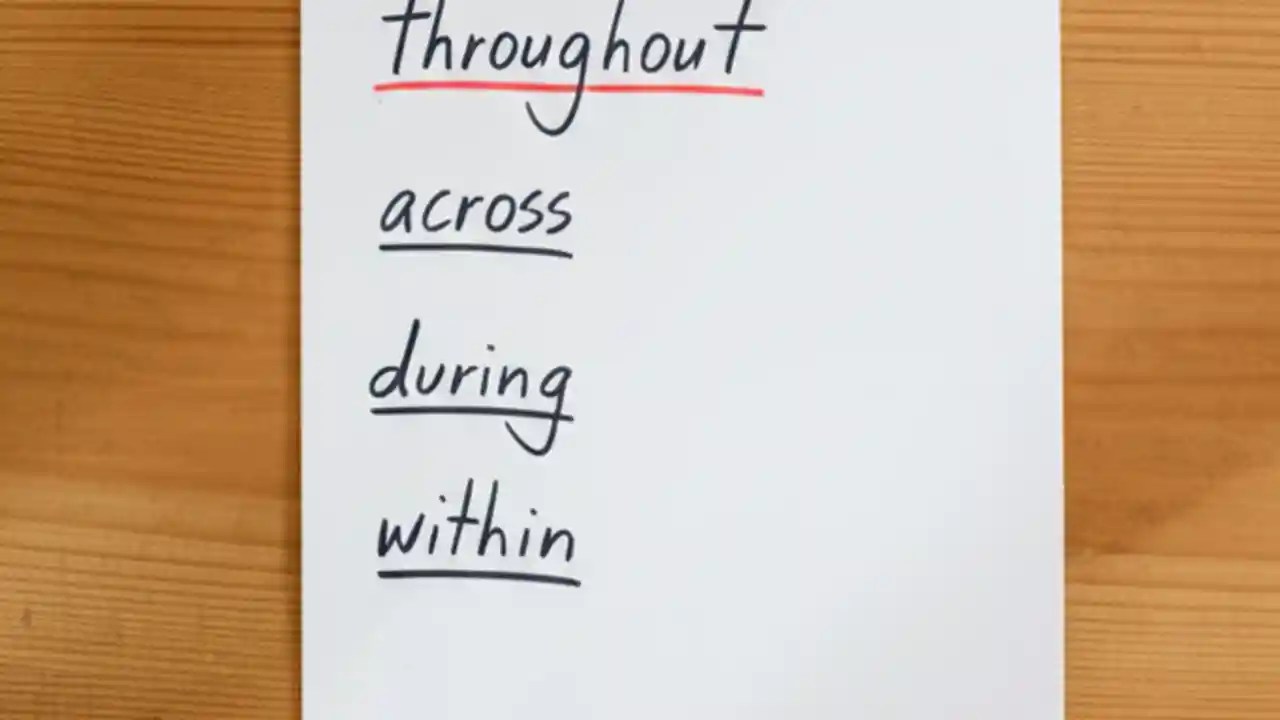 throughout
across
during
within